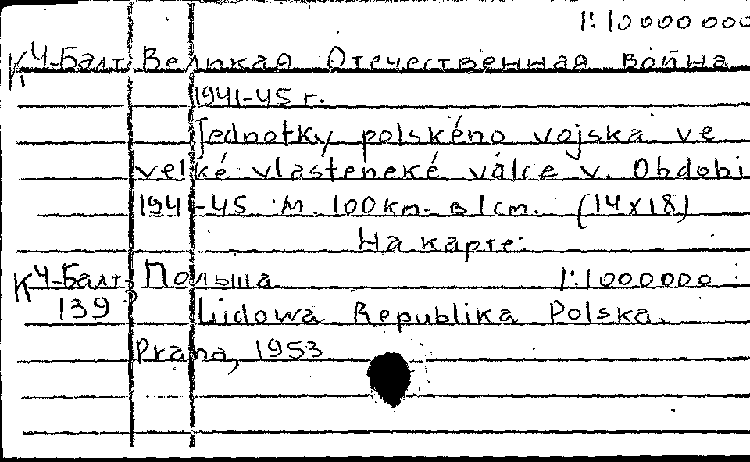 1:10000000
К Ч-Балт Великая Отечественная война
1941-45 г.
Jednotky polského vojska ve
velké vlastenecké válce v. Obdobi
1941-45 М. 100km. в 1cm. (14x18)
На карте:
К Ч-Балт Польша 1:1000000
139 Ludowa Republika Polska.
Praha, 1953